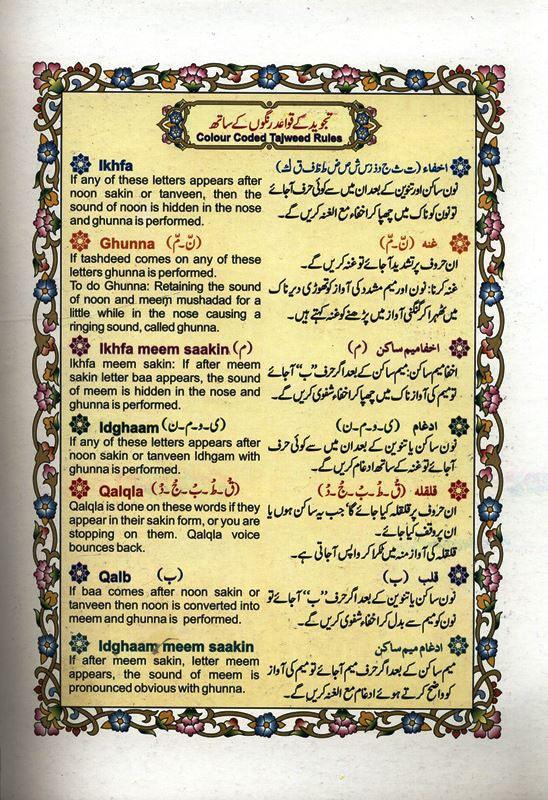 تجوید کے قواعد رنگوں کے ساتھ
Colour Coded Tajweed Rules
Ikhfa
If any of these letters appears after
noon sakin or tanveen, then the
sound of noon is hidden in the nose
and ghunna is performed.
اخفاء (ت ث ج د ذ ز س ش ص ض ط ظ ف ق ك)
نون ساکن اور تنوین کے بعد ان میں سے کوئی حرف آجائے
تو نون کو ناک میں چھپا کر اخفاء مع الغنہ کریں گے۔
Ghunna (نّ - مّ)
If tashdeed comes on any of these
letters ghunna is performed.
To do Ghunna: Retaining the sound
of noon and meem mushadad for a
little while in the nose causing a
ringing sound, called ghunna.
غنہ (نّ - مّ)
ان حروف پر تشدید آجائے تو غنہ کریں گے۔
غنہ کرنا: نون اور میم مشدد کی آواز کو تھوڑی دیر ناک
میں ٹھہرا کر گنگنی آواز میں پڑھنے کو غنہ کہتے ہیں۔
Ikhfa meem saakin (م)
Ikhfa meem sakin: If after meem
sakin letter baa appears, the sound
of meem is hidden in the nose and
ghunna is performed.
اخفا میم ساکن (م)
اخفا میم ساکن: میم ساکن کے بعد اگر حرف ”ب“ آجائے
تو میم کی آواز ناک میں چھپا کر اخفاء شفوی کریں گے۔
Idghaam (ی - و - م - ن)
If any of these letters appears after
noon sakin or tanveen Idhgam with
ghunna is performed.
ادغام (ی - و - م - ن)
نون ساکن یا تنوین کے بعد ان میں سے کوئی حرف
آجائے تو غنہ کے ساتھ ادغام کریں گے۔
Qalqla (قُ - طُ - بُ - جُ - دُ)
Qalqla is done on these words if they
appear in their sakin form, or you are
stopping on them. Qalqla voice
bounces back.
قلقلہ (قُ - طُ - بُ - جُ - دُ)
ان حروف پر قلقلہ کیا جائے گا‘ جب یہ ساکن ہوں یا
ان پر وقف کیا جائے۔
قلقلہ کی آواز منہ میں ٹکرا کر واپس آجاتی ہے۔
Qalb (ب)
If baa comes after noon sakin or
tanveen then noon is converted into
meem and ghunna is performed.
قلب (ب)
نون ساکن یا تنوین کے بعد اگر حرف ”ب“ آجائے تو
نون کو میم سے بدل کر اخفاء شفوی کریں گے۔
Idghaam meem saakin
If after meem sakin, letter meem
appears, the sound of meem is
pronounced obvious with ghunna.
ادغام میم ساکن
میم ساکن کے بعد اگر حرف میم آجائے تو میم کی آواز
کو واضح کرتے ہوئے ادغام مع الغنہ کریں گے۔